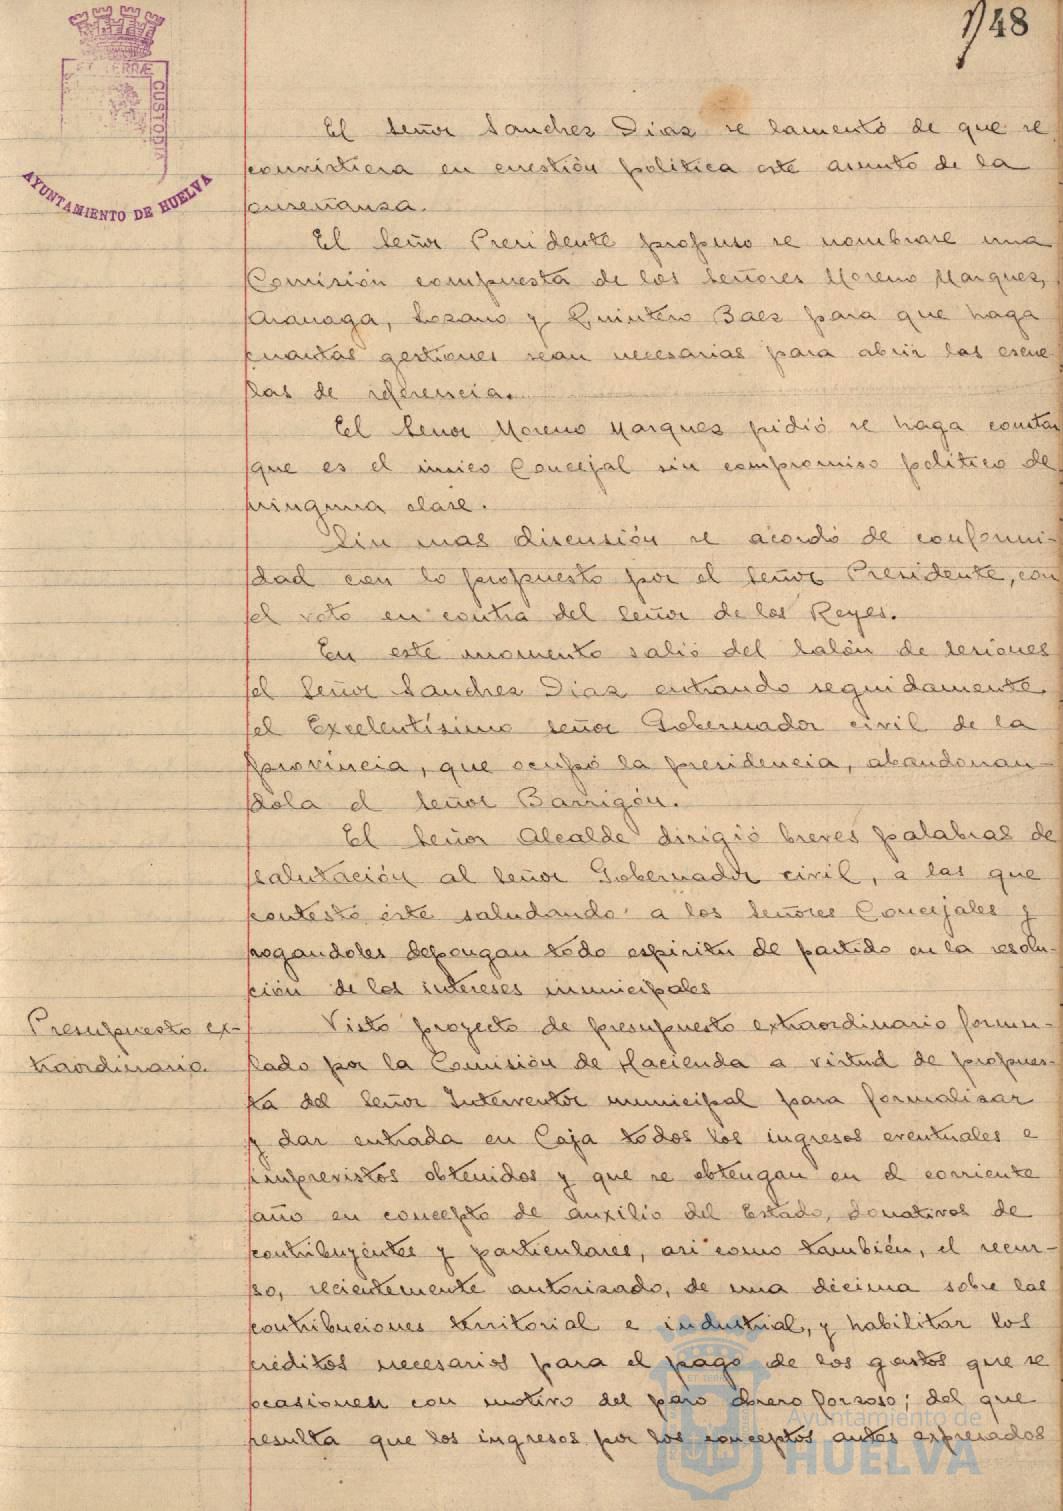 48
TERRÆ
CUSTODIA
AYUNTAMIENTO DE HUELVA
El Señor Sanchez Diaz se lamentó de que se
convirtiera en cuestión política este asunto de la
enseñanza.
El Señor Presidente propuso se nombrase una
Comisión compuesta de los Señores Moreno Marquez,
Aranaga, Lozano y Quintero Baez para que haga
cuantas gestiones sean necesarias para abrir las escue
las de referencia.
El Señor Moreno Marquez pidió se haga constar
que es el unico Concejal sin compromiso politico de
ninguna clase.
Sin mas discusión se acordó de conformi-
dad con lo propuesto por el Señor Presidente, con
el voto en contra del Señor de los Reyes.
En este momento salió del Salón de Sesiones
el Señor Sanchez Diaz entrando seguidamente
el Excelentísimo señor Gobernador civil de la
provincia, que ocupó la presidencia, abandonan-
dola el Señor Barrigón.
El Señor Alcalde dirigió breves palabras de
salutación al Señor Gobernador civil, a las que
contestó éste saludando a los Señores Concejales y
rogandoles depongan todo espiritu de partido en la resolu-
ción de los intereses municipales
Presupuesto ex-
traordinario.
Visto proyecto de presupuesto extraordinario formu-
lado por la Comisión de Hacienda a virtud de propues-
ta del Señor Interventor municipal para formalizar
y dar entrada en Caja todos los ingresos eventuales e
imprevistos obtenidos y que se obtengan en el corriente
año en concepto de auxilio del Estado, donativos de
contribuyentes y particulares, asi como también, el recur-
so, recientemente autorizado, de una décima sobre las
contribuciones territorial e industrial, y habilitar los
créditos necesarios para el pago de los gastos que se
ocasionen con motivo del paro obrero forzoso; del que
resulta que los ingresos por los conceptos antes expresados
Ayuntamiento de
HUELVA